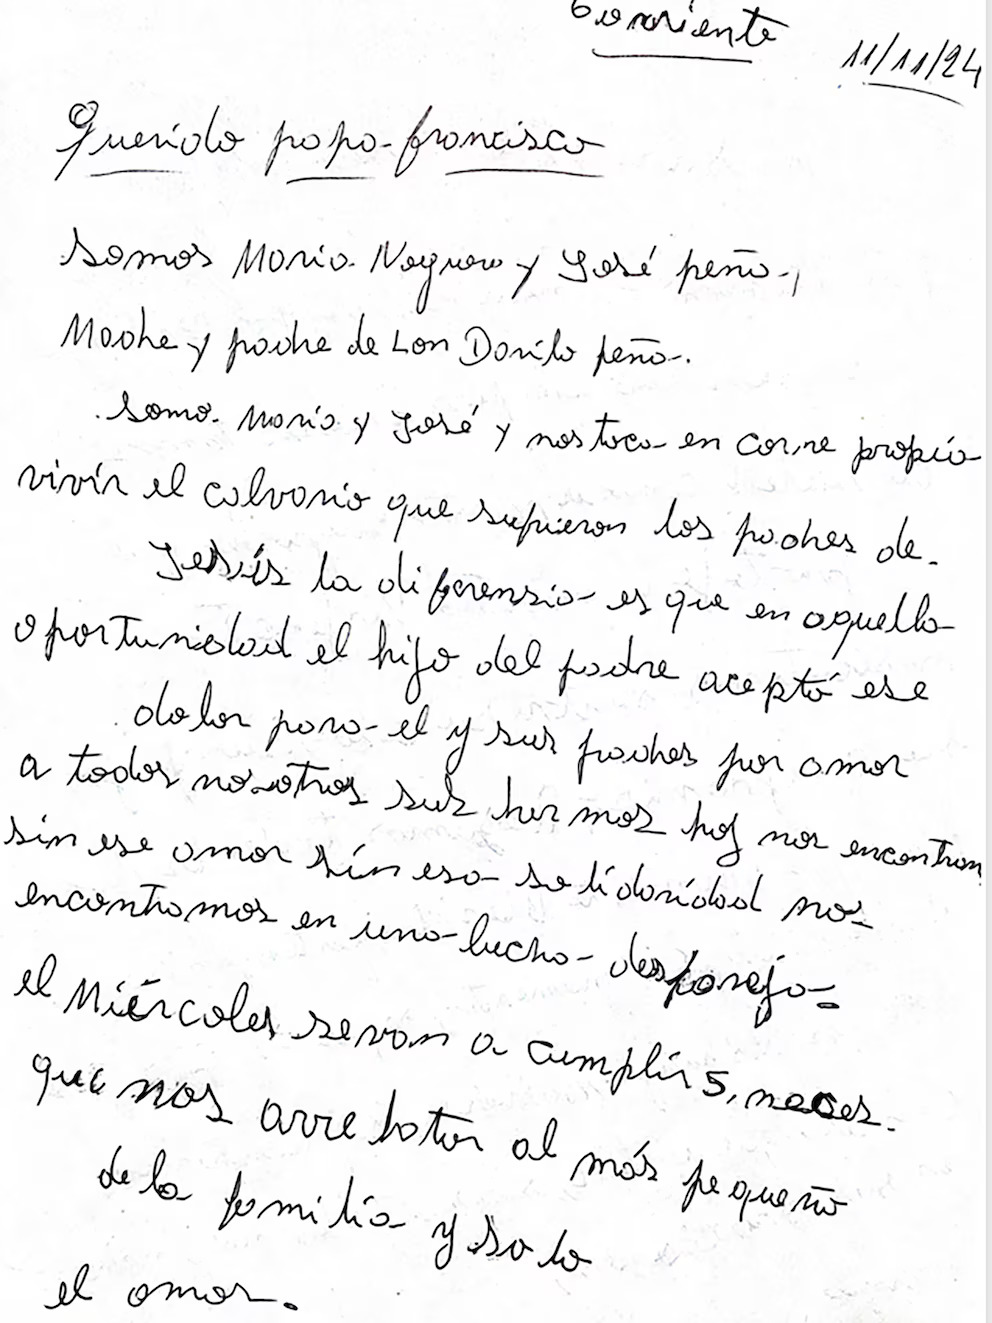 Corriente
11/11/24
Querido papa francisco
Somos Maria Noguera y José peña,
Madre y padre de Loan Danilo peña.
Somo Maria y José y nos toca en carne propia
vivir el calvario que supieron los padres de
Jesús la diferensia es que en aquella
oportunidad el hijo del padre aceptó ese
dolor para el y sus padres por amor
a todos nosotros sus hermos hoy nos encontram
sin ese amor sin esa solidaridad nos
encontramos en una lucha despareja
el Miércoles se van a cumplir 5, meces.
que nos arrebatar al más pequeño
de la familia y solo
el amor.